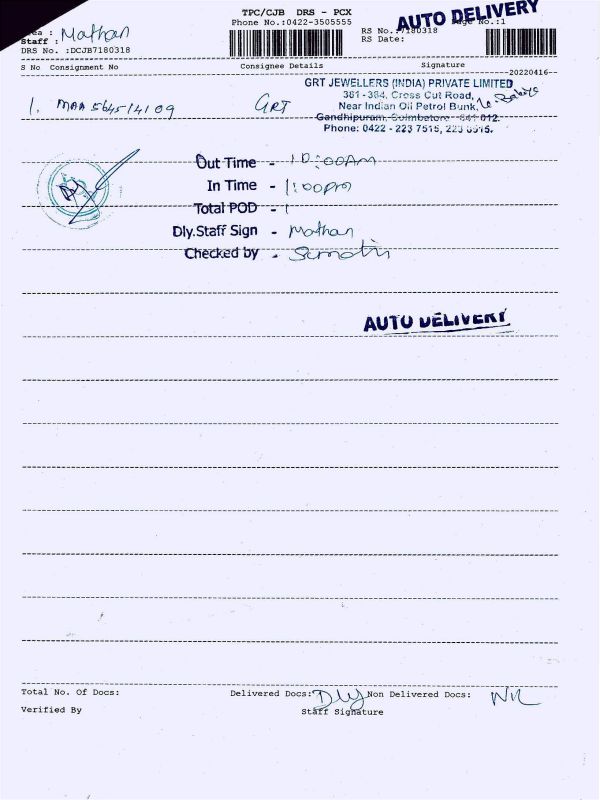 TPC/CJB DRS - PCX
AUTO DELIVERY
Phone No.:0422-3505555
Page No.:1
Mathan
Staff :
RS No.:7180318
DRS No. :DCJB7180318
RS Date:
S No Consignment No Consignee Details Signature
20220416
GRT JEWELLERS (INDIA) PRIVATE LIMITED
381 - 384, Cross Cut Road,
1. MAA 564514109 GRT
Near Indian Oil Petrol Bunk,
Gandhipuram, Coimbatore - 641 012.
Phone: 0422 - 223 7515, 223
Out Time - 10:00AM
In Time - 1:00pm
Total POD - 1
Dly.Staff Sign - Mathan
Checked by -
AUTO DELIVERY
Total No. Of Docs: Delivered Docs: Dly Non Delivered Docs: NIL
Verified By Staff Signature